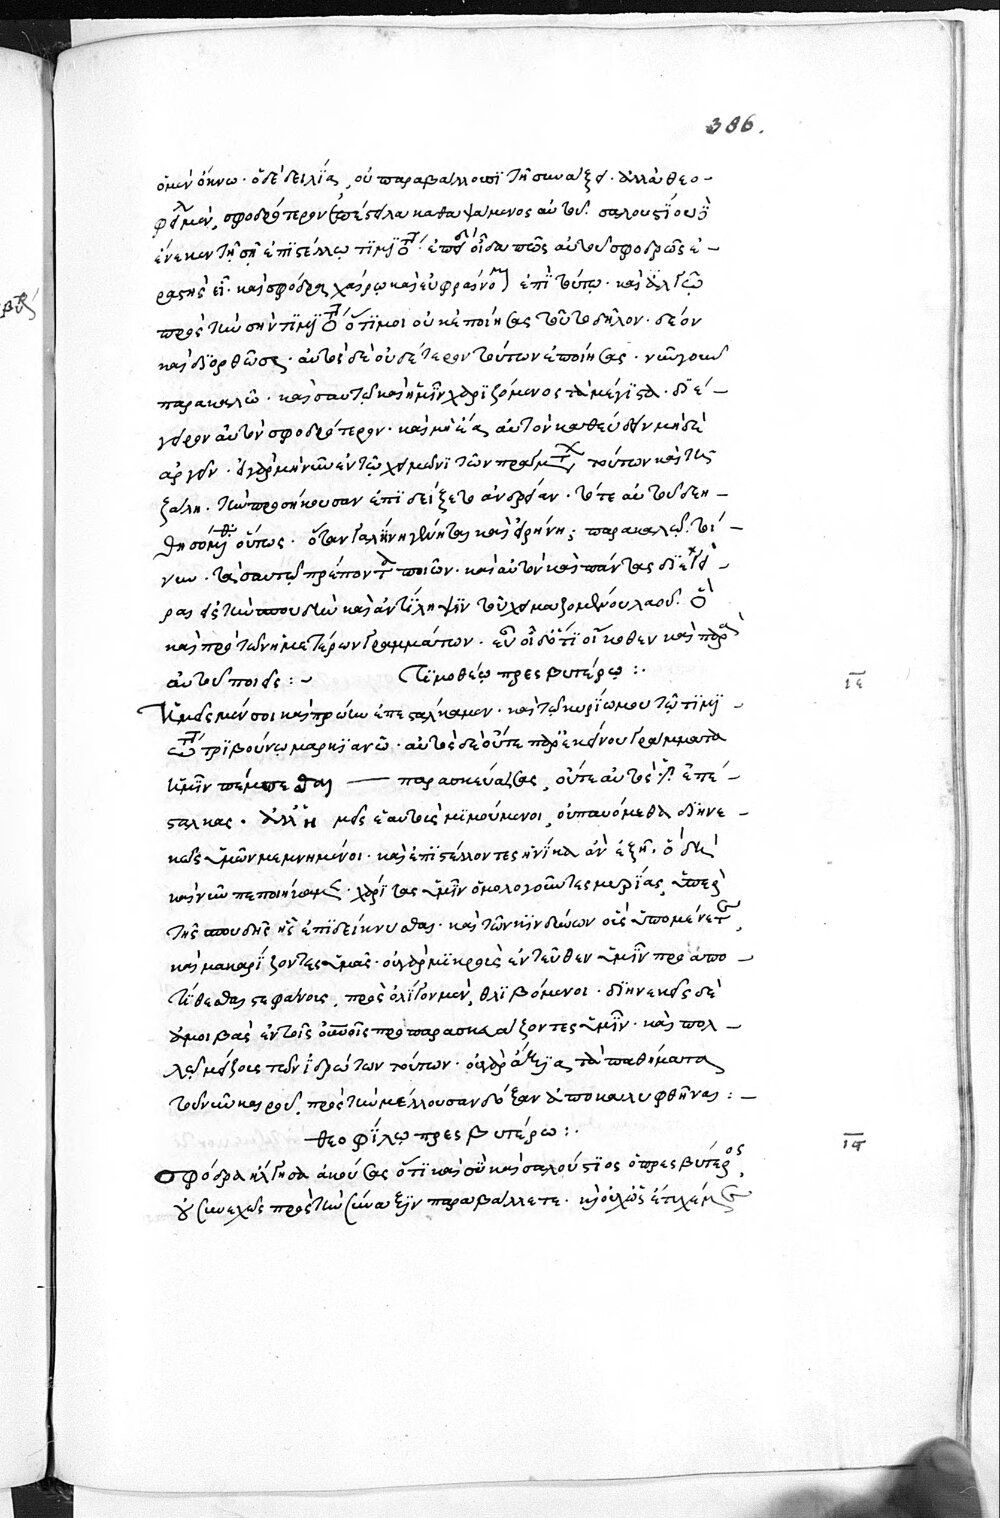 386.
ὁ μὲν ὄκνῳ· ὁ δὲ δειλίᾳ, οὐ παραβάλλουσι τῇ συνάξει· ἀλλὰ θεο-
φίλῳ μὲν, σφοδρότερον ἐπέστειλα καθαψάμενος αὐτοῦ. σαλουστίου δὲ
ἕνεκεν τῇ σῇ ἐπιστέλλω τιμιό ἐπειδὴ οἶδα πῶς αὐτοῦ σφοδρῶς ἐ-
ραστὴς εἶ· καὶ σφόδρα χαίρω καὶ εὐφραίνομαι ἐπὶ τούτῳ· καὶ ἀλγῶ
πρὸς τὴν σὴν τιμιό ὅτι μοι οὐκ ἐποίησας τοῦτο δῆλον· δέον
καὶ διορθῶσαι· αὐτὸς δὲ οὐδέτερον τούτων ἐποίησας· νῦν γοῦν
παρακαλῶ· καὶ σαυτῷ καὶ ἡμῖν χαριζόμενος τὰ μέγιστα· διέ-
γειρον αὐτὸν σφοδρότερον· καὶ μὴ ἔα αὐτὸν καθεύδειν μηδὲ
ἀργεῖν· εἰ γὰρ μὴ νῦν ἐν τῷ χειμῶνι τῶν πραγμάτων τούτων καὶ τῇ
ζάλῃ τὴν προσήκουσαν ἐπιδείξαιτο ἀνδρείαν· πότε αὐτοῦ δεη-
θησόμεθα οὕτως· ὅταν γαλήνη γένηται καὶ εἰρήνη; παρακαλῶ τοί-
νυν· τὰ σαυτῷ πρέποντα ποιῶν· καὶ αὐτὸν καὶ πάντας διέγει-
ραι εἰς τὴν σπουδὴν καὶ ἀντίληψιν τοῦ χειμαζομένου λαοῦ. ὃ
καὶ πρὸ τῶν ἡμετέρων γραμμάτων· εὖ οἶδ' ὅτι οἴκοθεν καὶ παρὰ
αὐτοῦ ποιεῖς :~
Τιμοθέῳ πρεσβυτέρῳ :·
ιε
Ἡμεῖς μέν σοι καὶ πρώην ἐπεστάλκαμεν· καὶ τῷ κυρίῳ μου τῷ τιμι-
ωτάτῳ τριβούνῳ μαρκιανῷ· αὐτὸς δὲ οὔτε παρ' ἐκείνου γράμματα
ἡμῖν πέμπεσθαι — παρασκεύασας, οὔτε αὐτὸς ἐπέ-
σταλκας· ἀλλ' ἡμεῖς ἑαυτοὺς μιμούμενοι, οὐ παυόμεθα διηνε-
κῶς ὑμῶν μεμνημένοι· καὶ ἐπιστέλλοντες ἡνίκα ἂν ἐξῇ· ὃ δὴ
καὶ νῦν πεποιήκαμεν· χάριτας ὑμῖν ὁμολογοῦντες μυρίας, ὑπὲρ
τῆς σπουδῆς ἧς ἐπιδείκνυσθαι· καὶ τῶν κινδύνων οὓς ὑπομένετε,
καὶ μακαρίζοντες ὑμᾶς· οὐ γὰρ μικροὺς ἐντεῦθεν ὑμῖν προαπο-
τίθεσθαι στεφάνους, πρὸς ὀλίγον μὲν, θλιβόμενοι· διηνεκεῖς δὲ
ἀμοιβὰς ἐν τοῖς οὐνοῖς προπαρασκευάζοντες ὑμῖν· καὶ πολ-
λῷ μείζους τῶν ἱδρώτων τούτων· οὐ γὰρ ἄξια τὰ παθήματα
τοῦ νῦν καιροῦ, πρὸς τὴν μέλλουσαν δόξαν ἀποκαλυφθῆναι :~
θεοφίλῳ πρεσβυτέρῳ :·
ις
Σφόδρα ἤλγησα ἀκούσας ὅτι καὶ σὺ καὶ σαλούστιος ὁ πρεσβύτερος,
οὐ συνεχῶς πρὸς τὴν σύναξιν παραβάλλετε·